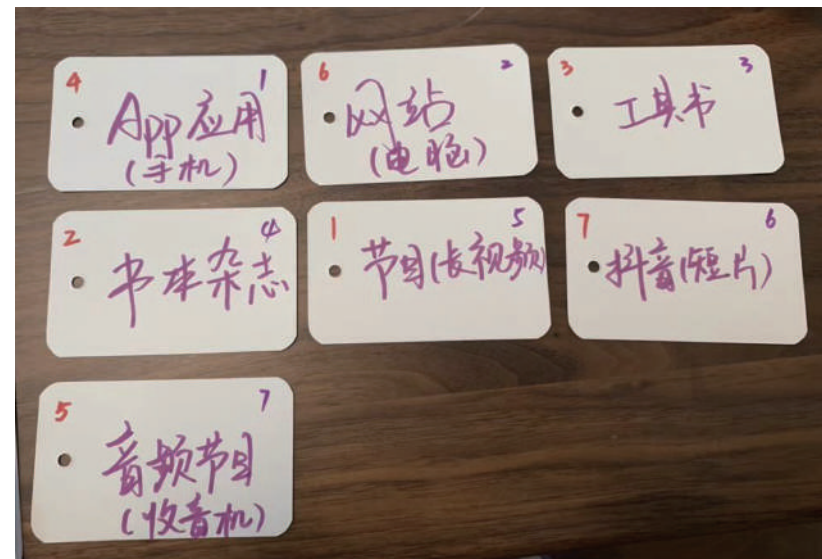 4 1
App应用
(手机)
6 2
网站
(电脑)
3 3
工具书
2 4
书本杂志
1 5
节目(长视频)
7 6
抖音(短片)
5 7
音频节目
(收音机)